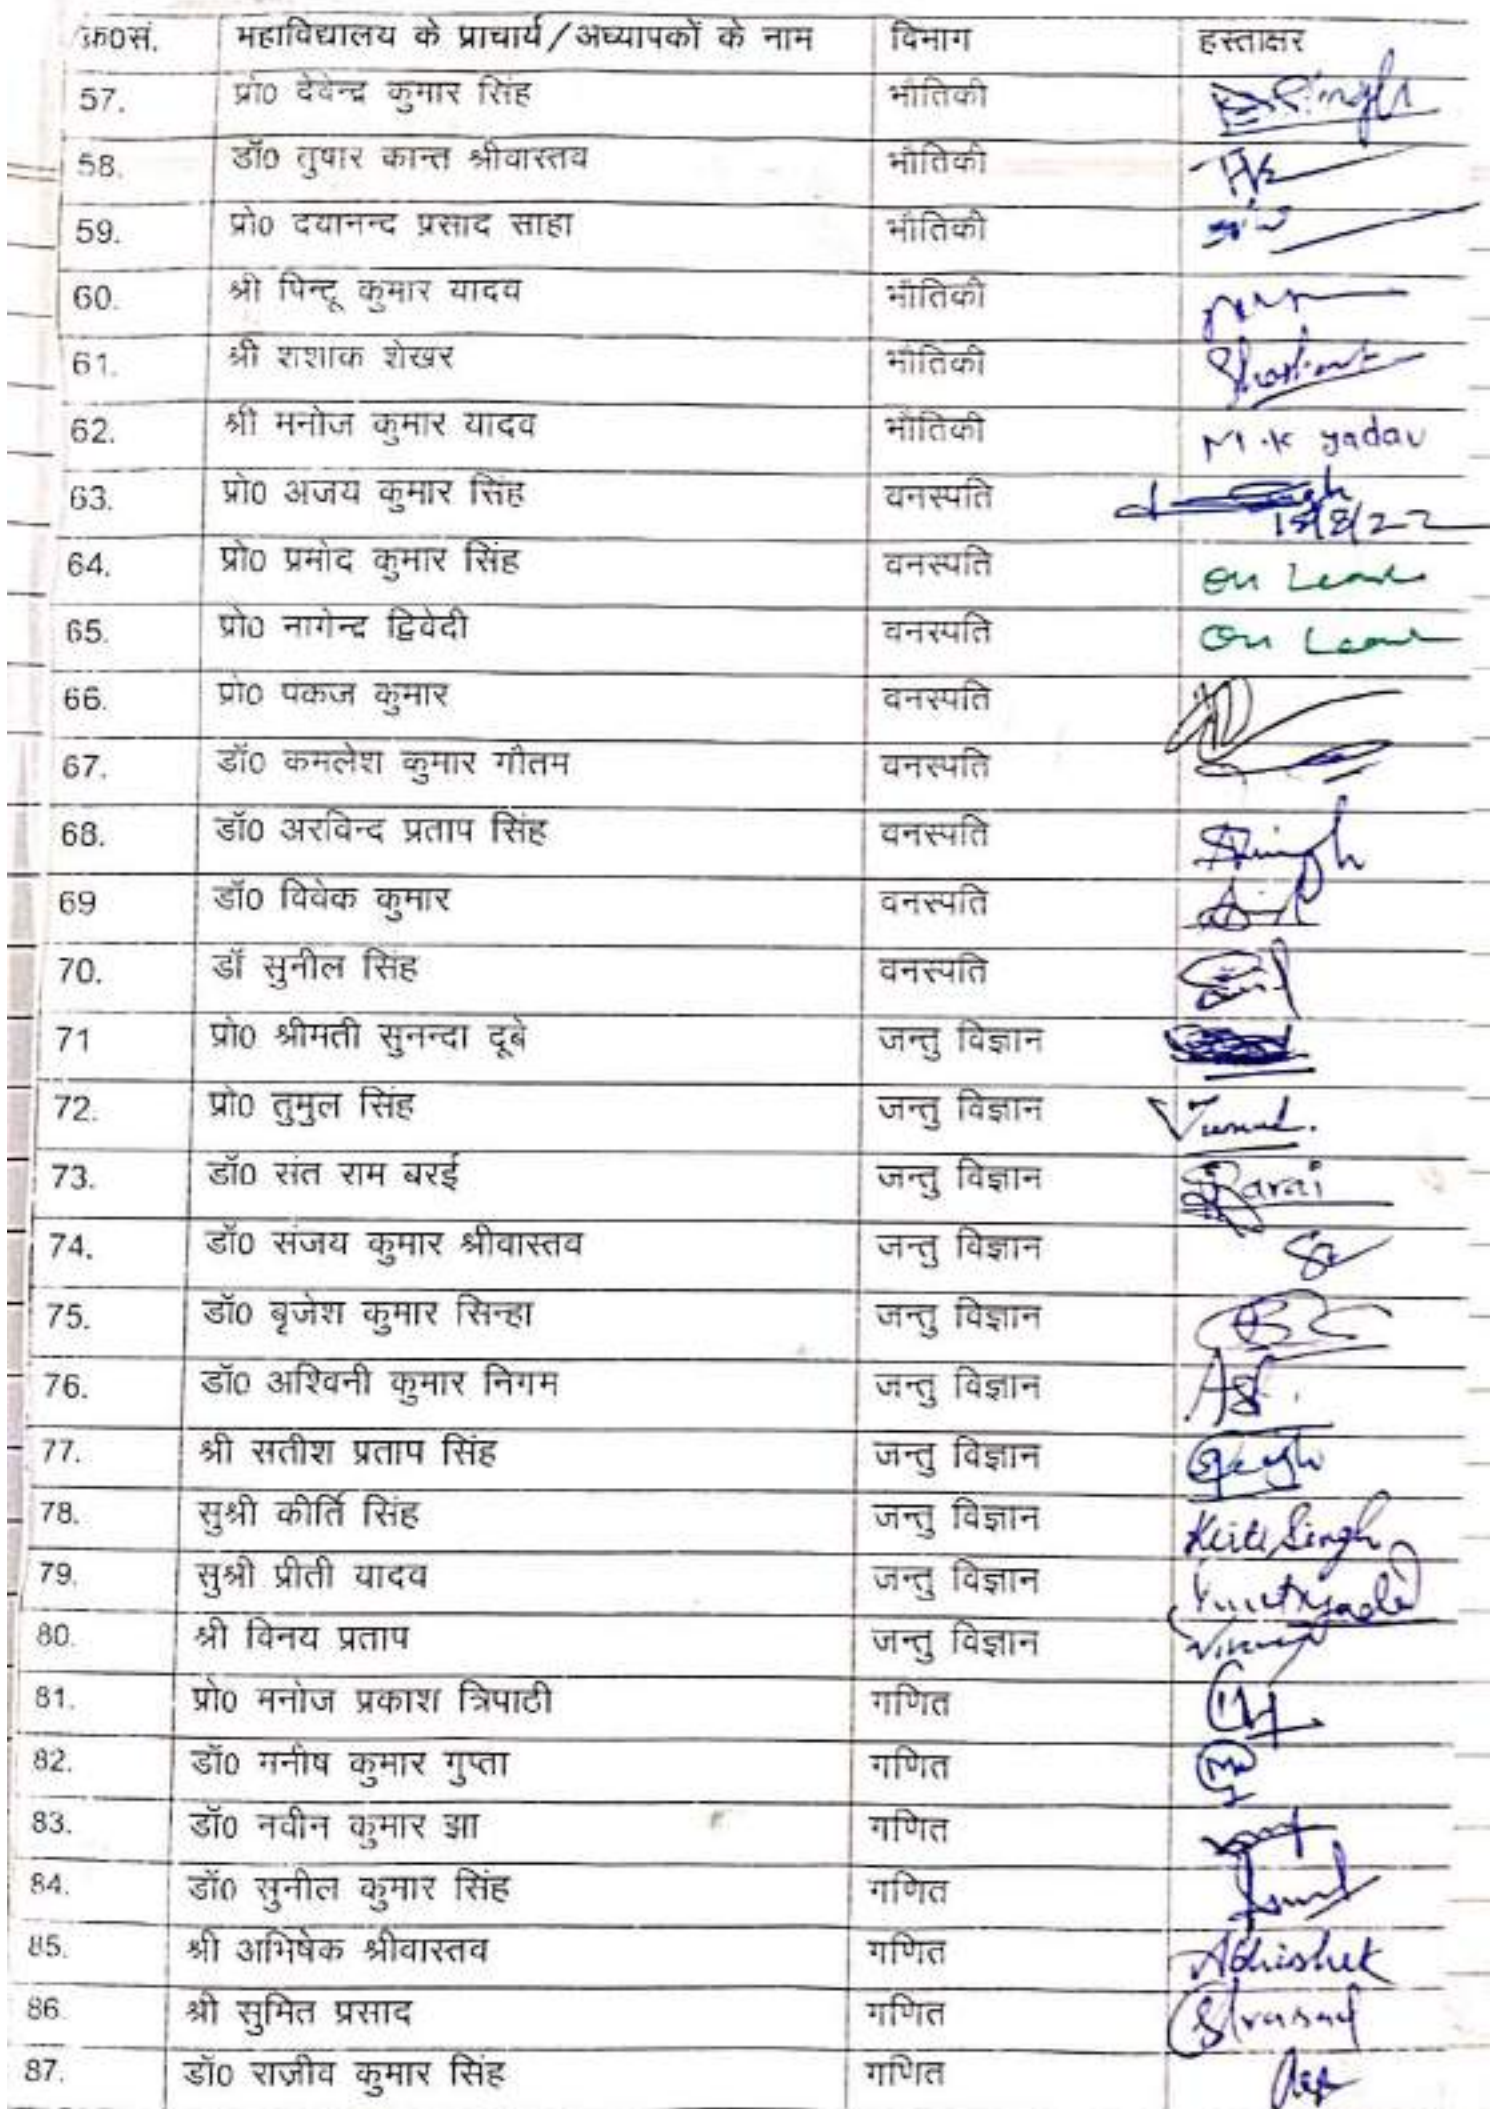 क्र0सं. महाविद्यालय के प्राचार्य/अध्यापकों के नाम विभाग हस्ताक्षर
57. प्रो0 देवेन्द्र कुमार सिंह भौतिकी Singh
58. डॉ0 तुषार कान्त श्रीवास्तव भौतिकी
59. प्रो0 दयानन्द प्रसाद साहा भौतिकी
60. श्री पिन्टू कुमार यादव भौतिकी
61. श्री शशाक शेखर भौतिकी
62. श्री मनोज कुमार यादव भौतिकी M.K yadav
63. प्रो0 अजय कुमार सिंह वनस्पति
64. प्रो0 प्रमोद कुमार सिंह वनस्पति on Leave
65. प्रो0 नागेन्द्र द्विवेदी वनस्पति On Leave
66. प्रो0 पकज कुमार वनस्पति
67. डॉ0 कमलेश कुमार गौतम वनस्पति
68. डॉ0 अरविन्द प्रताप सिंह वनस्पति
69 डॉ0 विवेक कुमार वनस्पति
70. डॉ सुनील सिंह वनस्पति
71 प्रो0 श्रीमती सुनन्दा दूबे जन्तु विज्ञान
72. प्रो0 तुमुल सिंह जन्तु विज्ञान
73. डॉ0 संत राम बरई जन्तु विज्ञान Barai
74. डॉ0 संजय कुमार श्रीवास्तव जन्तु विज्ञान
75. डॉ0 बृजेश कुमार सिन्हा जन्तु विज्ञान
76. डॉ0 अश्विनी कुमार निगम जन्तु विज्ञान
77. श्री सतीश प्रताप सिंह जन्तु विज्ञान
78. सुश्री कीर्ति सिंह जन्तु विज्ञान Kirti Singh
79. सुश्री प्रीती यादव जन्तु विज्ञान
80. श्री विनय प्रताप जन्तु विज्ञान
81. प्रो0 मनोज प्रकाश त्रिपाठी गणित
82. डॉ0 मनीष कुमार गुप्ता गणित
83. डॉ0 नवीन कुमार झा गणित
84. डॉ0 सुनील कुमार सिंह गणित
85. श्री अभिषेक श्रीवास्तव गणित Abhishek
86. श्री सुमित प्रसाद गणित SPrasad
87. डॉ0 राजीव कुमार सिंह गणित